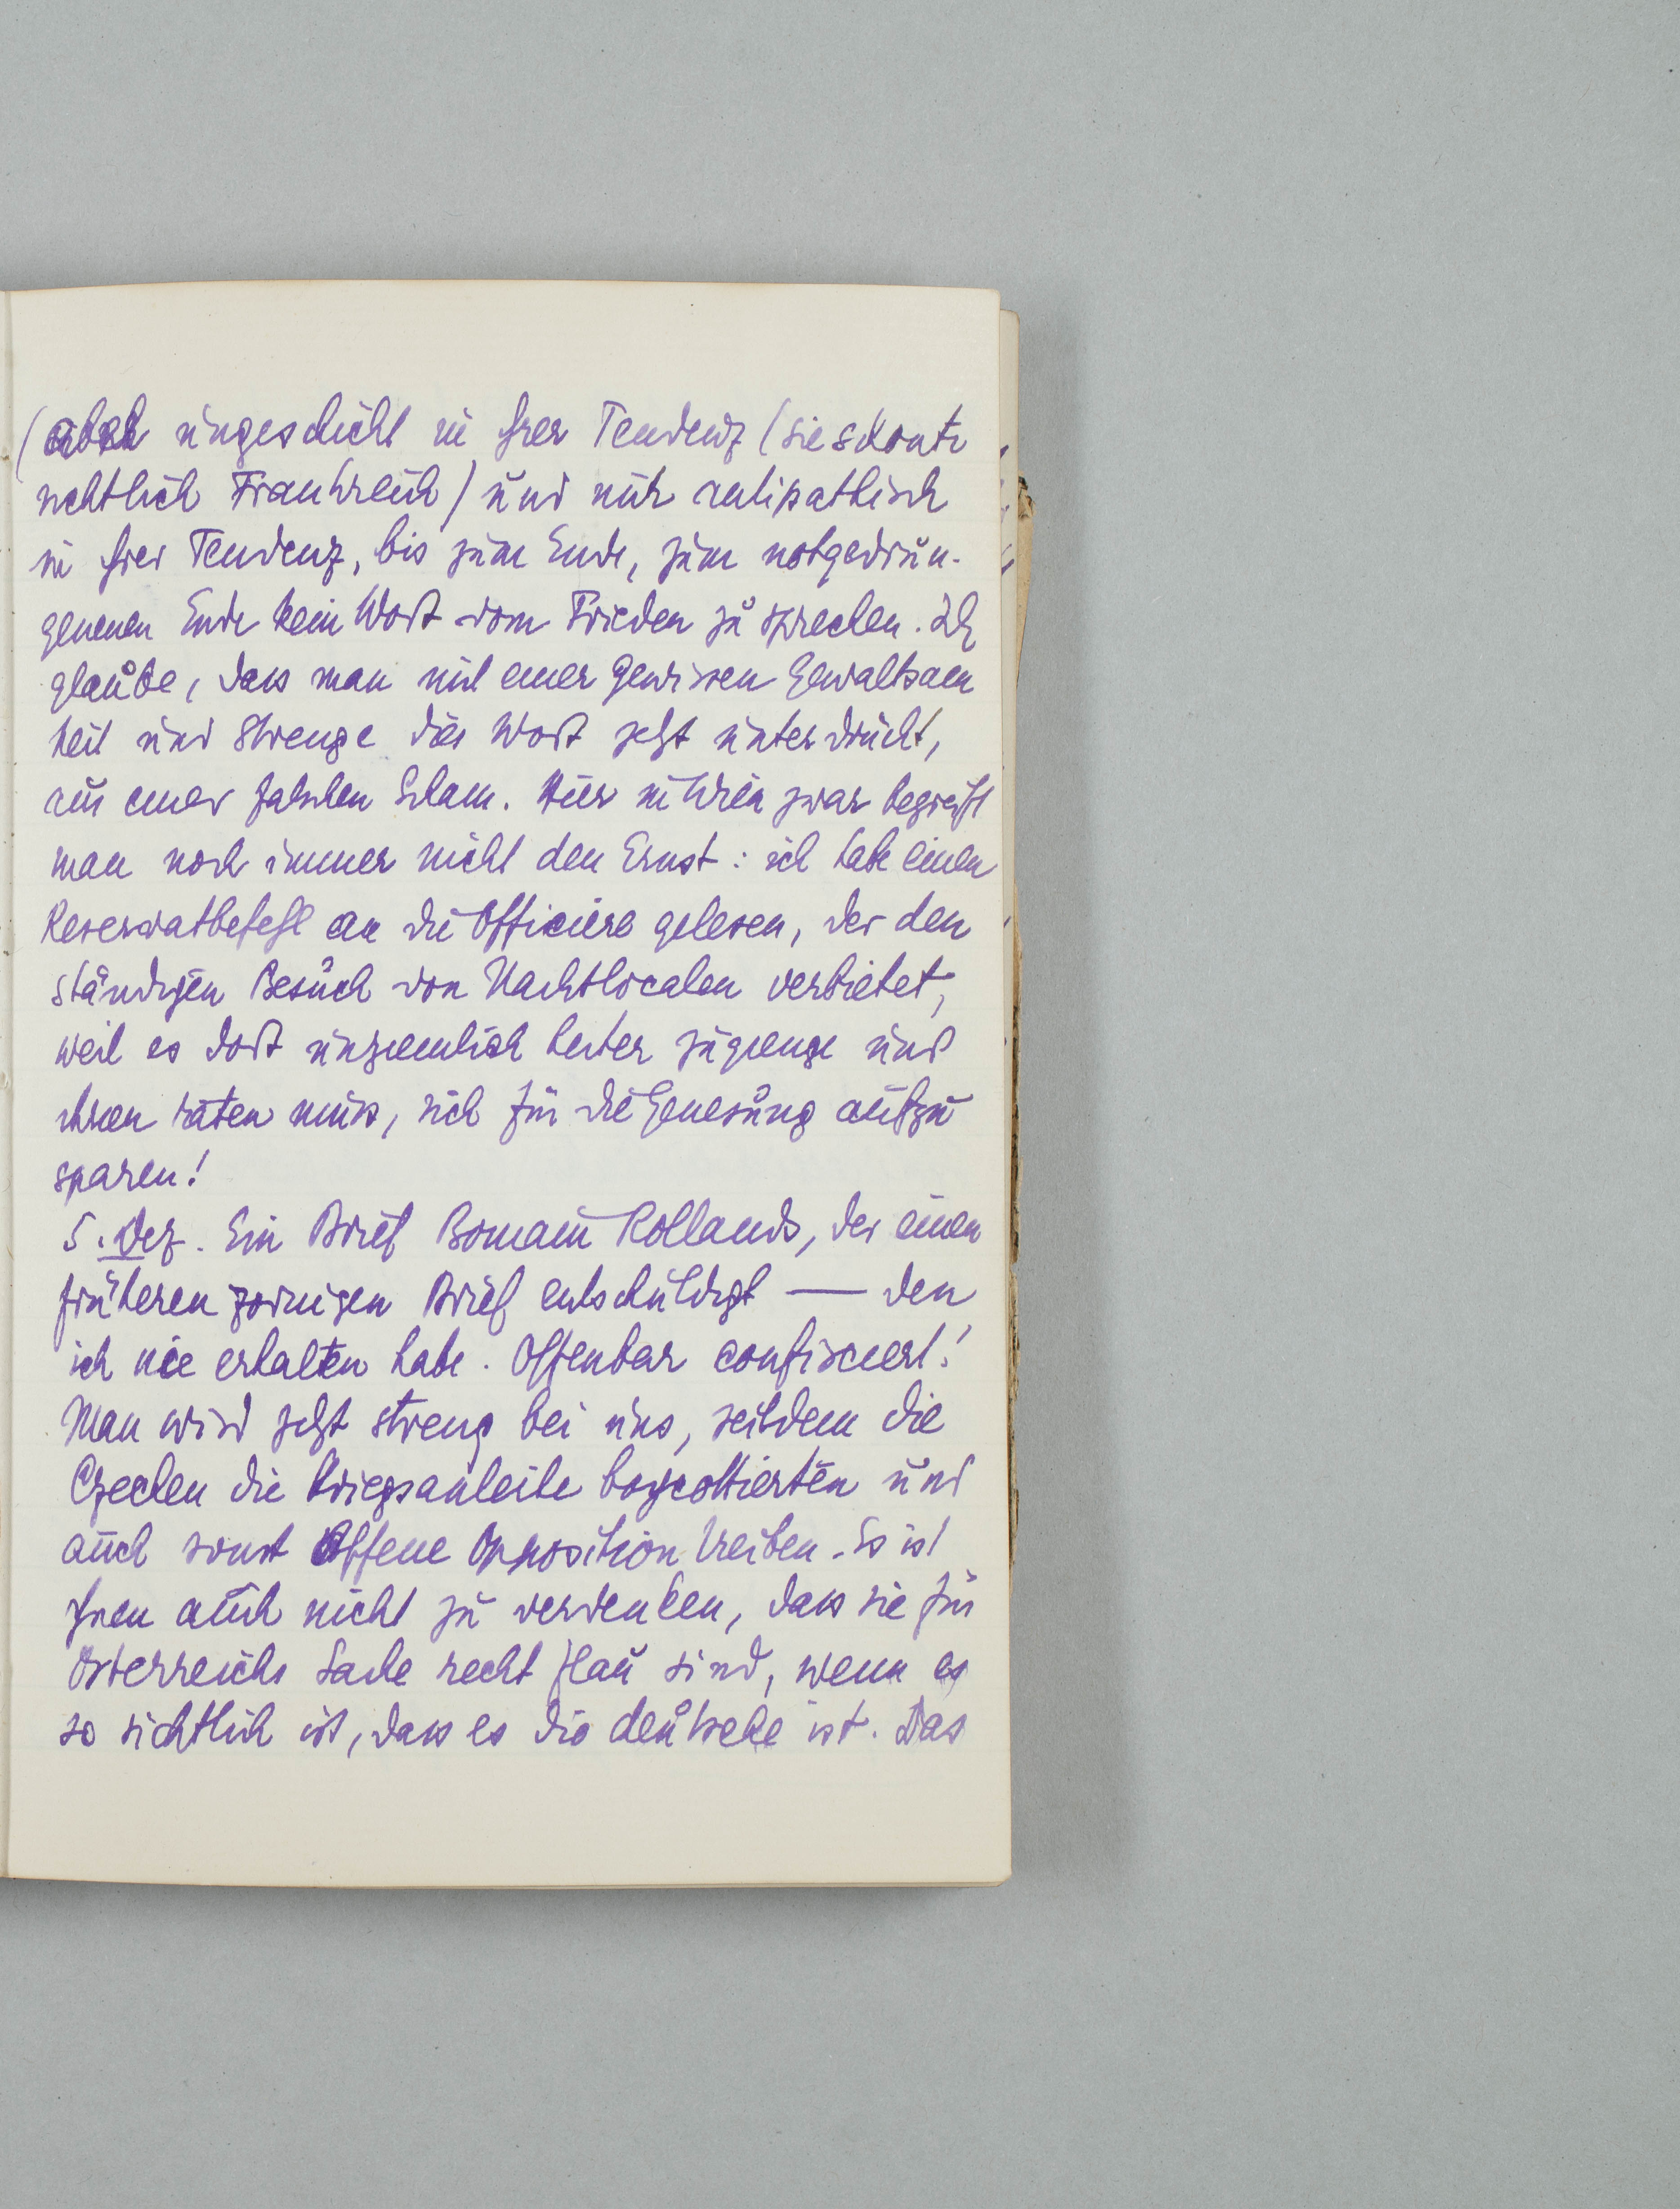 (aber ungeschickt in ihrer Tendenz (sie skonti
sichtlich Frankreich) und mir antipathisch
in ihrer Tendenz, bis zum Ende, zum notgedrun-
genenen Ende kein Wort vom Frieden zu sprechen. Ich
glaube, dass man mit einer gewissen Gewaltsam
keit und Strenge dies Wort jetzt unterdrückt,
aus einer falschen Scham. Hier in Wien zwar begreift
man noch immer nicht den Ernst: ich habe einen
Reservatbefehl an die Officiere gelesen, der den
ständigen Besuch von Nachtlocalen verbietet,
weil es dort unziemlich heiter zugienge und
ihnen raten muss, sich für die Genesung aufzu
sparen!
5. Dez. Ein Brief Romain Rollands, der einen
früheren zornigen Brief entschuldigt — den
ich nie erhalten habe. Offenbar confisciert!
Man wird jetzt streng bei uns, seitdem die
Czechen die Kriegsanleihe boycottierten und
auch sonst offene Opposition treiben. Es ist
ihnen auch nicht zu verdenken, dass sie für
Österreichs Sache recht flau sind, wenn es
so sichtlich ist, dass es die deutsche ist. Das